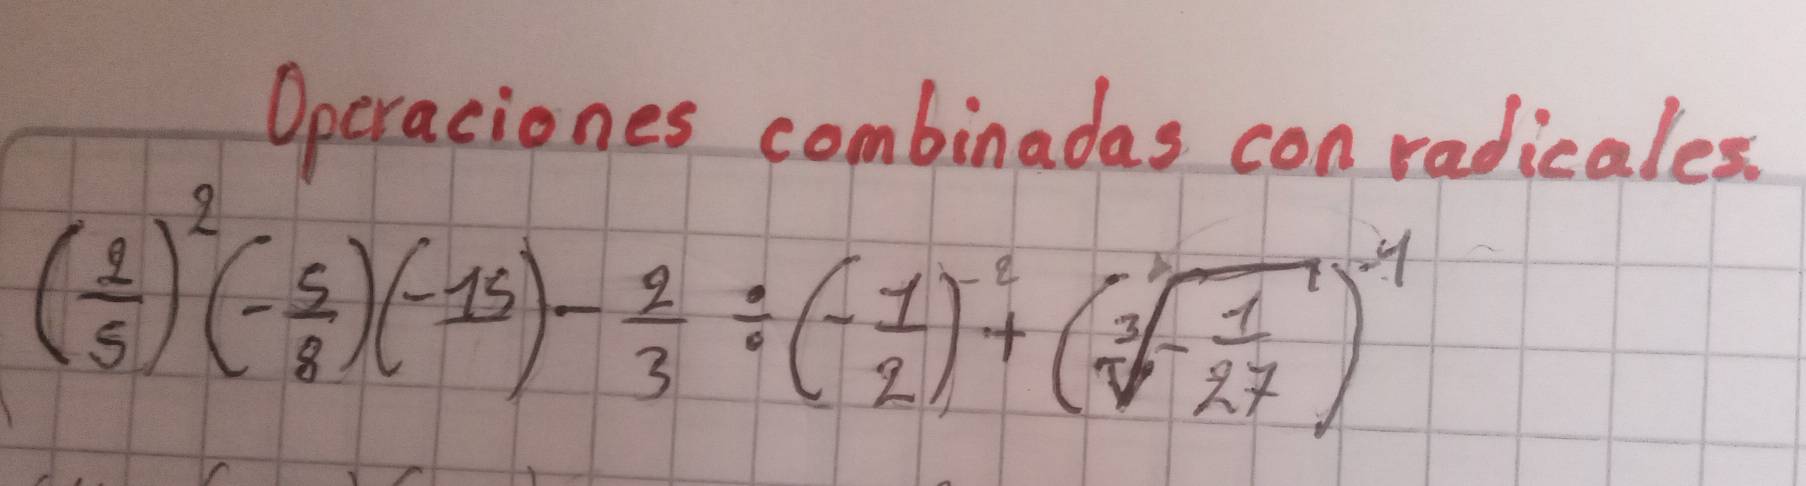 Operaciones combinadas con radicales.
(2/5)² (-5/8)(-15) - 2/3 ÷ (-1/2)⁻² + (∛(-1/27))⁻¹